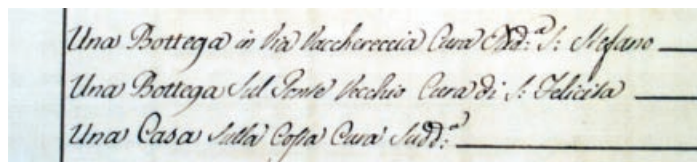 Una Bottega in Via Vacchereccia Cura S: Stefano
Una Bottega Sul Ponte Vecchio Cura di S: Felicita
Una Casa Sulla Costa Cura Sudd:ª